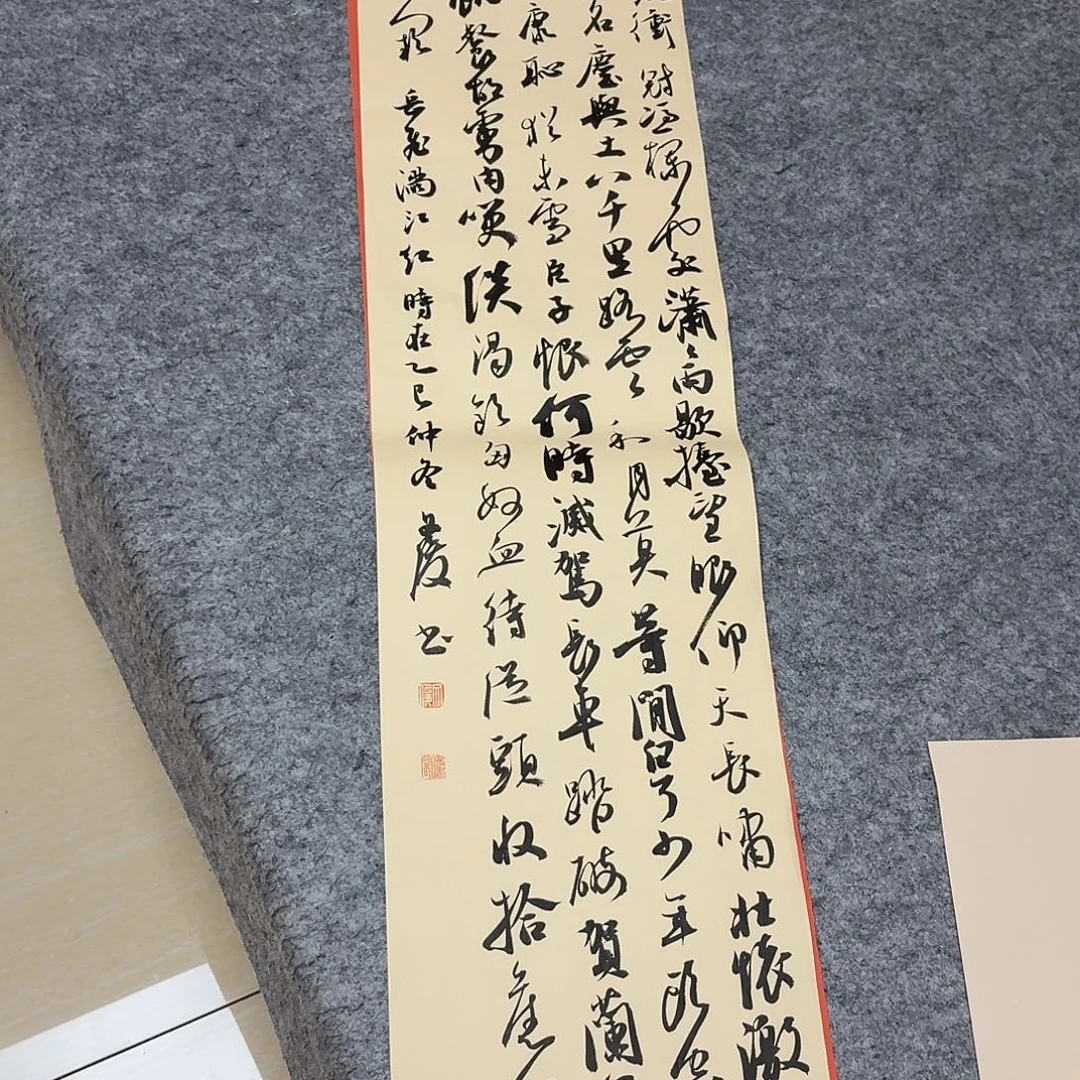 衝冠憑欄處瀟〻雨歇擡望眼仰天長嘯壯懷激
名塵與土八千里路雲和月莫等閒白了少年頭空
康恥猶未雪臣子恨何時滅駕長車踏破賀蘭
飢餐胡虜肉咲談渴飲匈奴血待從頭收拾舊
岳飛滿江紅時在乙巳仲冬慶書